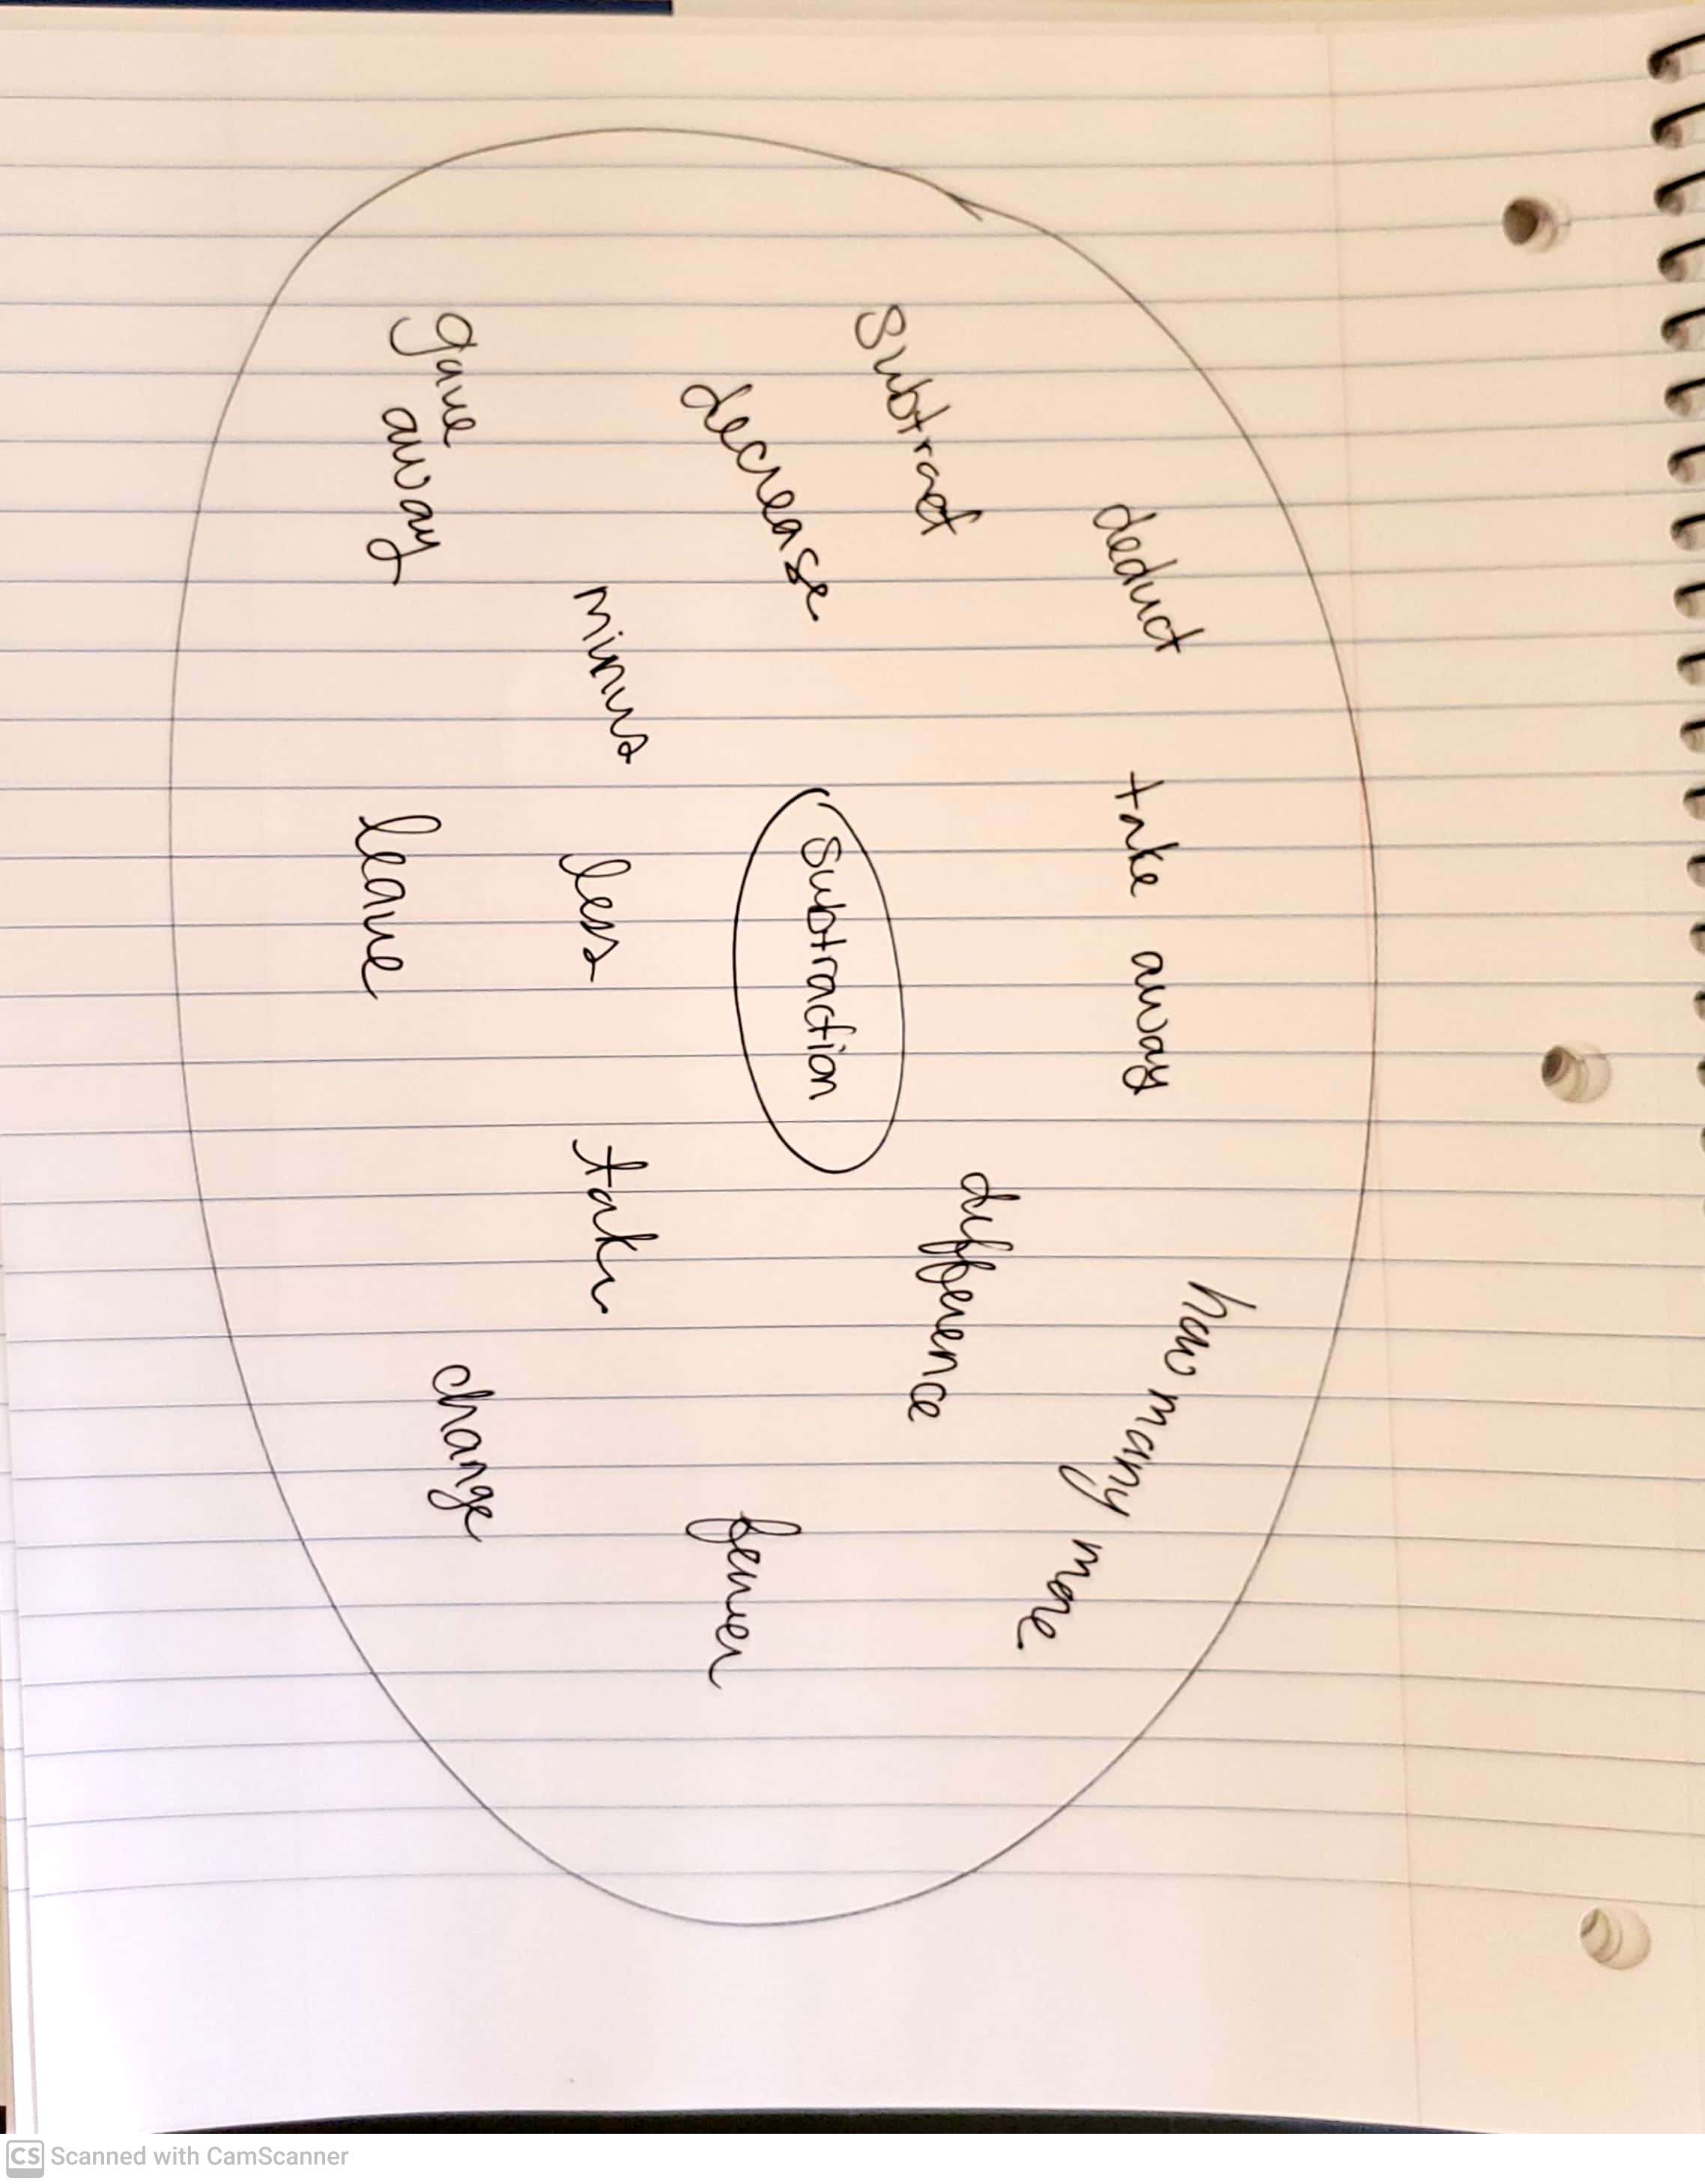 deduct
take away
how many more
difference
subtract
subtraction
decrease
fewer
minus
less
take
gave
away
leave
change
CS Scanned with CamScanner